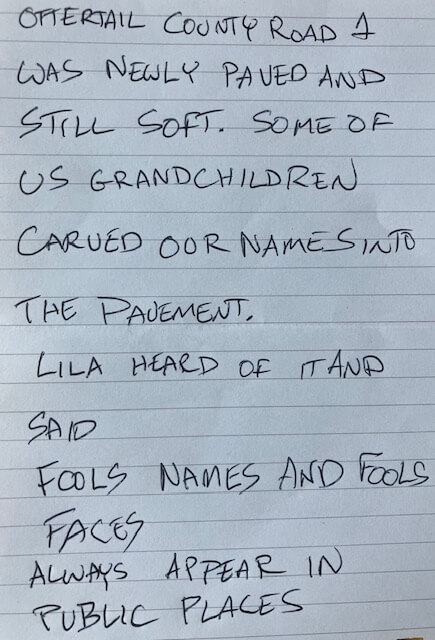 OTTERTAIL COUNTY ROAD 1
WAS NEWLY PAVED AND
STILL SOFT. SOME OF
US GRANDCHILDREN
CARVED OUR NAMES INTO
THE PAVEMENT.
LILA HEARD OF IT AND
SAID
FOOLS NAMES AND FOOLS
FACES
ALWAYS APPEAR IN
PUBLIC PLACES